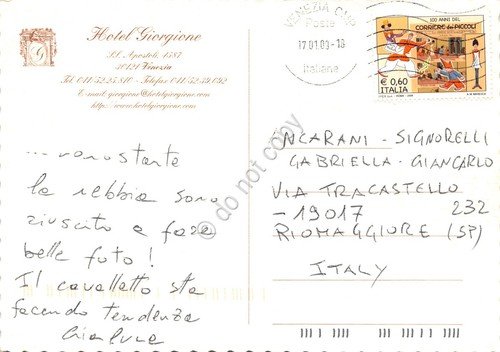 Hotel Giorgione
SS. Apostoli, 4587
30121 Venezia
Tel. 041-52.25.810 - Telefax 041-52.39.092
E-mail: giorgione@hotelgiorgione.com
http: www.hotelgiorgione.com
VENEZIA CMP
Poste
17.01.09-18
italiane
100 ANNI DEL
CORRIERE dei PICCOLI
€ 0,60
ITALIA
... nonostante
la nebbia sono
riuscato a fare
belle foto!
Il cavalletto sta
facendo tendenza
Gianluca
INCARANI - SIGNORELLI
GABRIELLA - GIANCARLO
VIA TRACASTELLO
232
- 19017
RIOMAGGIORE (SP)
ITALY
© do not copy